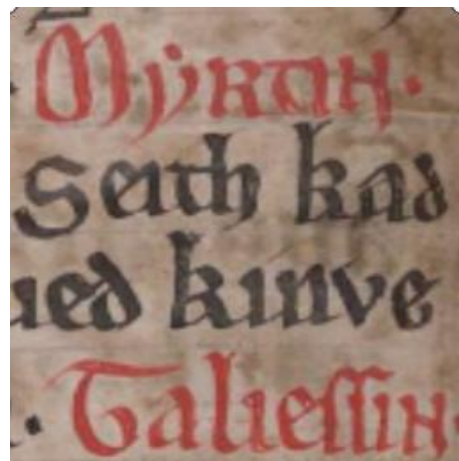 Mẏrtin.
Seith kad
ued kinve
. Taliessin.